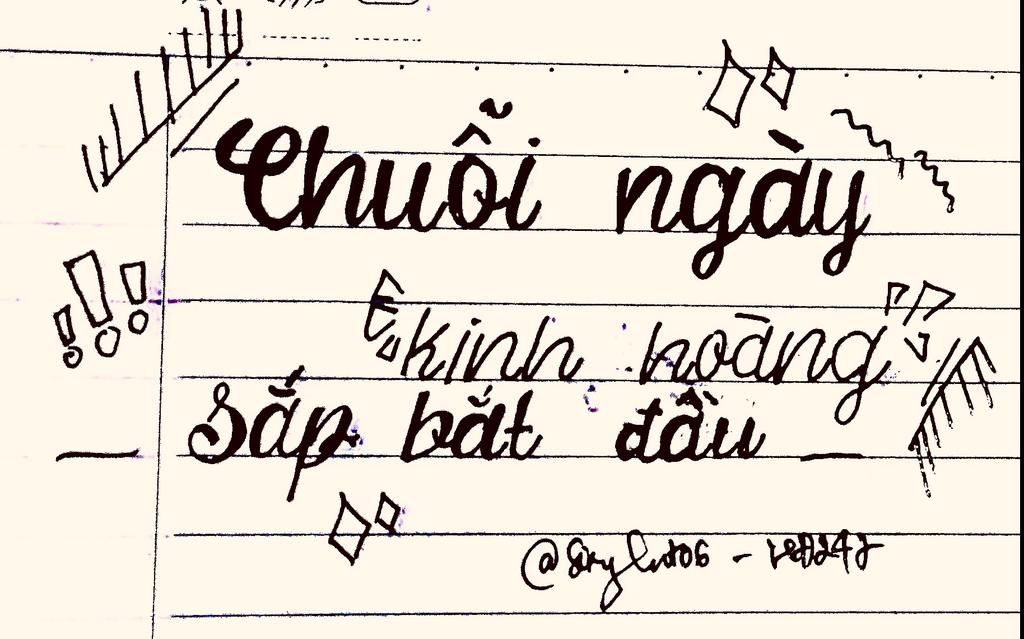 Chuỗi ngày
"kinh hoàng"
Sắp bắt đầu